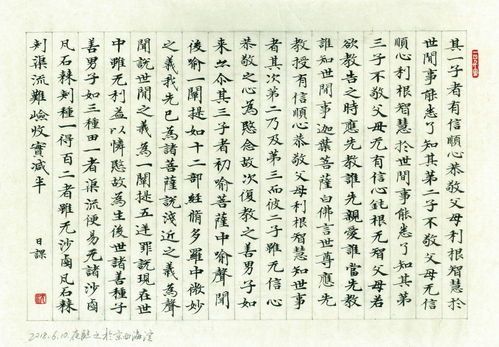 其一子者有信順心恭敬父母利根智慧於
世間事能悉了知其第二子不敬父母无信
順心利根智慧於世間事能悉了知其第
三子不敬父母无有信心鈍根无智父母若
欲教告之時應先教誰先親愛誰當先教
誰知世間事迦葉菩薩白佛言世尊應先
教授有信順心恭敬父母利根智慧知世事
者其次第二乃及第三而彼二子雖无信心
恭敬之心為愍念故次復教之善男子如
來亦尒其三子者初喻菩薩中喻聲聞
後喻一闡提如十二部經脩多羅中微妙
之義我先已為諸菩薩說淺近之義為聲
聞說世間之義為一闡提五逆罪說現在世
中雖无利益以憐愍故為生後世諸善種子
善男子如三種田一者渠流便易无諸沙鹵
瓦石棘刾種一得百二者雖无沙鹵瓦石棘
刾渠流難嶮收實減半
日課
2018.6.10.於京西海淀